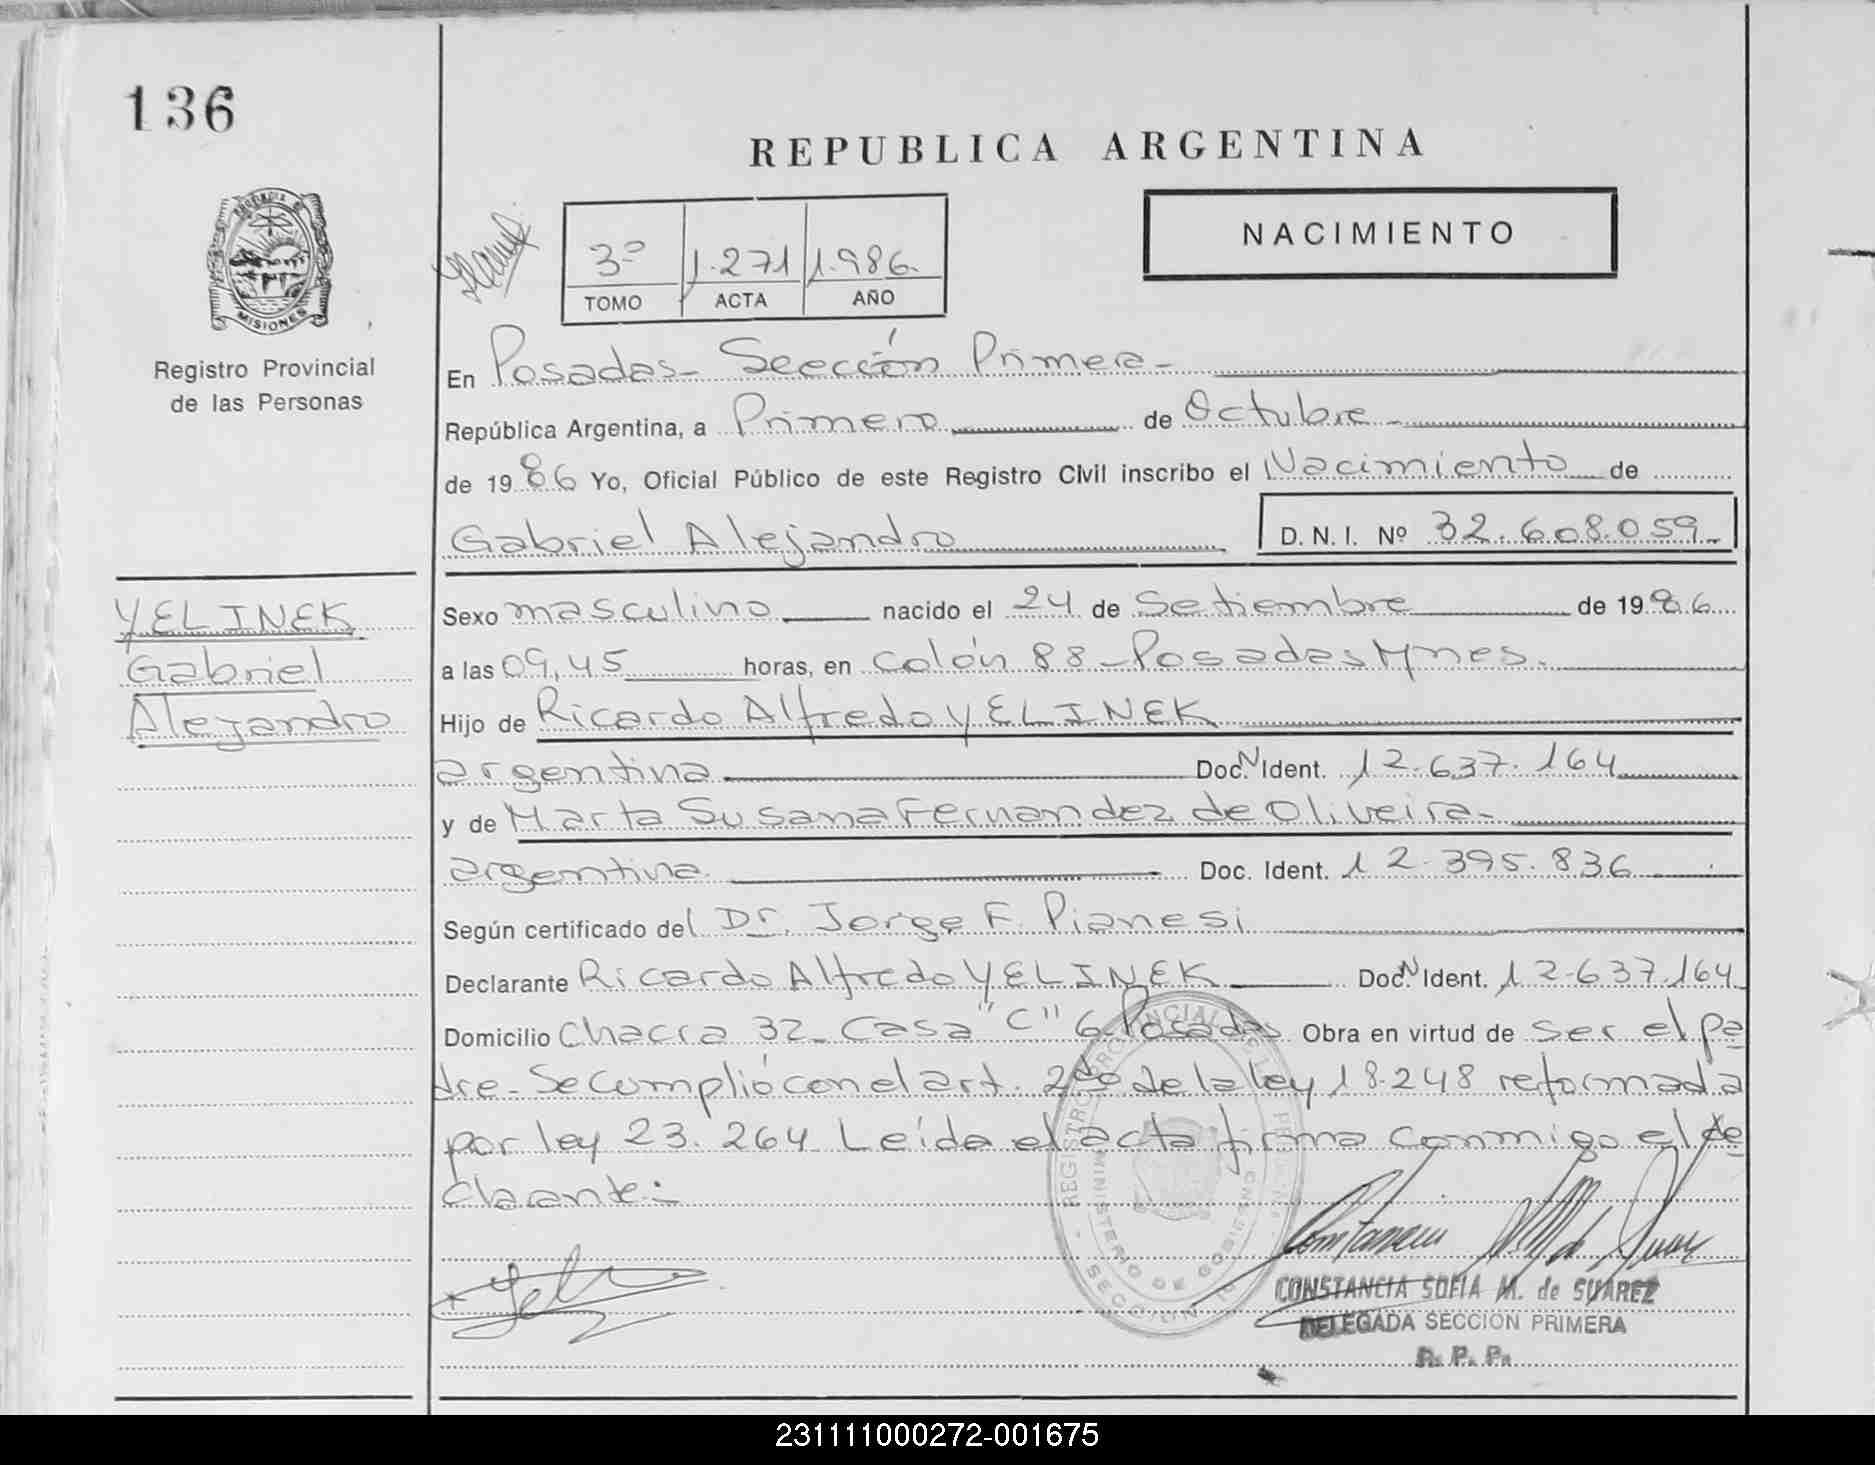 136
REPUBLICA ARGENTINA
NACIMIENTO
3º 1.271 1.986.
TOMO ACTA AÑO
PROVINCIA DE
MISIONES
Registro Provincial
de las Personas
En Posadas - Sección Primera -
República Argentina, a Primero de Octubre -
de 1986 Yo, Oficial Público de este Registro Civil inscribo el Nacimiento de
Gabriel Alejandro D. N. I. Nº 32.608.059.-
YELINEK
Gabriel
Alejandro
Sexo masculino nacido el 24 de Setiembre de 1986
a las 09,45 horas, en Colón 88 - Posadas Mnes.
Hijo de Ricardo Alfredo YELINEK
argentina Doc. N Ident. 12.637.164
y de Marta Susana Fernandez de Oliveira -
argentina Doc. Ident. 12.395.836
Según certificado del Dr. Jorge F. Pianesi
Declarante Ricardo Alfredo YELINEK Doc. N Ident. 12.637.164
Domicilio Chacra 32 - Casa "C" 6 - Posadas Obra en virtud de ser el pa
dre - Se cumplió con el art. 2do de la ley 18.248 reformada
por ley 23.264 Leída el acta firma conmigo el de
clarante:-
REGISTRO PROVINCIAL DE LAS
MINISTERIO DE GOBIERNO
SECCION
CONSTANCIA SOFIA M. de SUAREZ
DELEGADA SECCION PRIMERA
R. P. P.
231111000272-001675